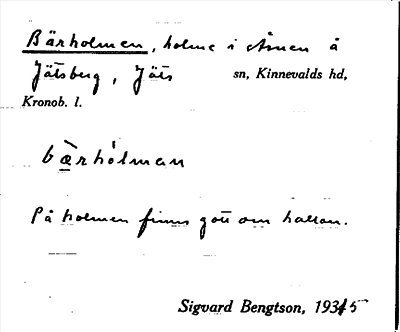 Bärholmen, holme i Åsnen å
Jätsberg, Jäts sn, Kinnevalds hd,
Kronob. l.
bæ̀rhólman
På holmen finns gott om hallon.
Sigvard Bengtson, 1935